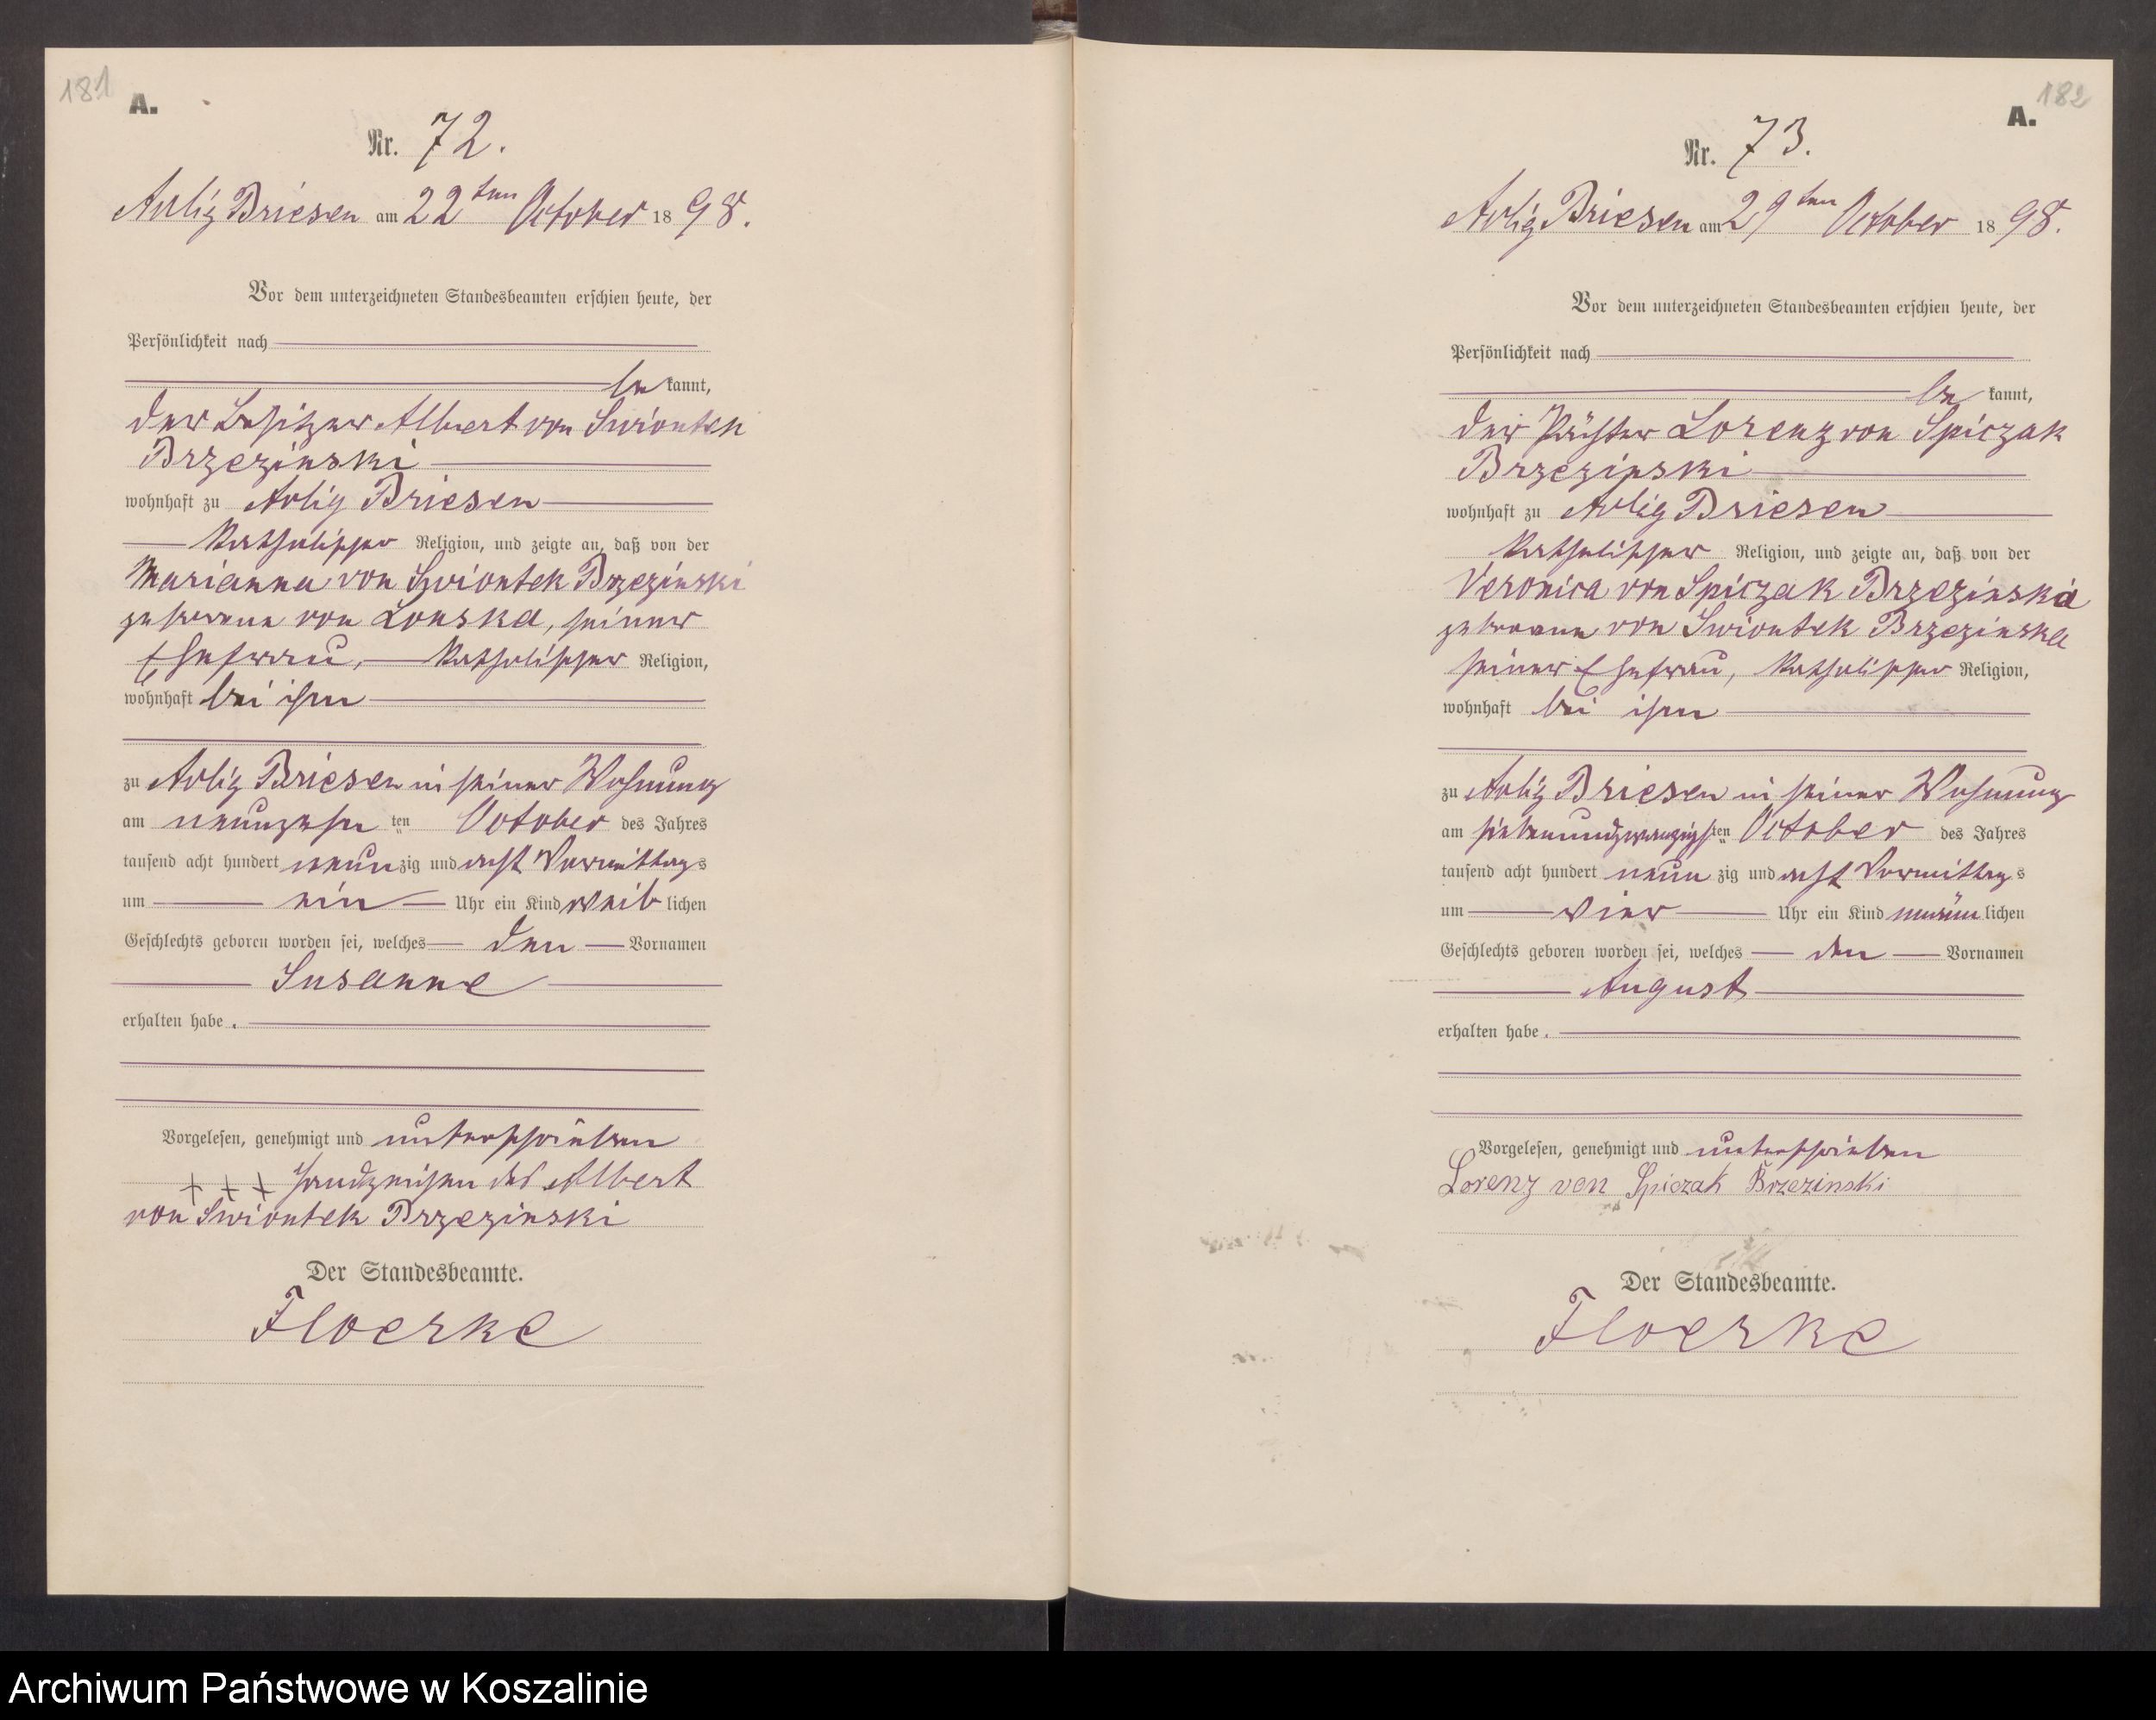 181
A.
Nr. 72.
Adlig Briesen am 22ten October 1898.
Vor dem unterzeichneten Standesbeamten erschien heute, der
Persönlichkeit nach
bekannt,
der Besitzer Albert von Swiontek
Brzezinski
wohnhaft zu Adlig Briesen
katholischer Religion, und zeigte an, daß von der
Marianna von Swiontek Brzezinski
geborene von Lonska, seiner
Ehefrau, katholischer Religion,
wohnhaft bei ihm
zu Adlig Briesen in seiner Wohnung
am neunzehnten October des Jahres
tausend acht hundert neunzig und acht Vormittags
um ein Uhr ein Kind weiblichen
Geschlechts geboren worden sei, welches den Vornamen
Susanne
erhalten habe.
Vorgelesen, genehmigt und unterschrieben
+ + + Handzeichen des Albert
von Swiontek Brzezinski
Der Standesbeamte.
Floerke
182
A.
Nr. 73.
Adlig Briesen am 29ten October 1898.
Vor dem unterzeichneten Standesbeamten erschien heute, der
Persönlichkeit nach
bekannt,
der Lorenz von Spiczak
Brzezinski
wohnhaft zu Adlig Briesen
katholischer Religion, und zeigte an, daß von der
Veronica von Spiczak Brzezinska
geborene von Swiontek Brzezinska
seiner Ehefrau, katholischer Religion,
wohnhaft bei ihm
zu Adlig Briesen in seiner Wohnung
am siebenundzwanzigsten October des Jahres
tausend acht hundert neunzig und acht Vormittags
um vier Uhr ein Kind männlichen
Geschlechts geboren worden sei, welches den Vornamen
August
erhalten habe.
Vorgelesen, genehmigt und unterschrieben
Lorenz von Spiczak Brzezinski
Der Standesbeamte.
Floerke
Archiwum Państwowe w Koszalinie